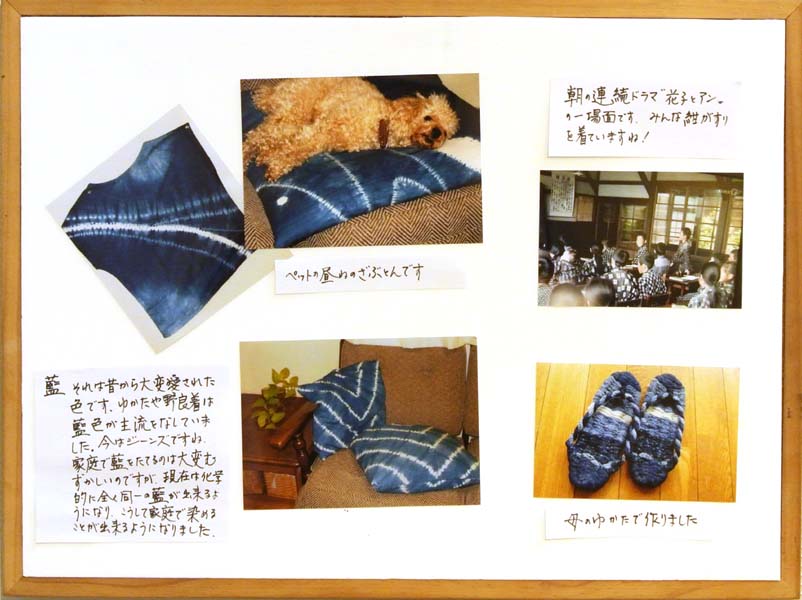 朝の連続ドラマ"花子とアン"
の一場面です. みんな紺がすり
を着ていますね!
ペットの昼ねのざぶとんです
藍 それは昔から大変愛された
色です. ゆかたや野良着は
藍色が主流をなしていま
した. 今はジーンズですね.
家庭で藍をたてるのは大変む
ずかしいのですが、現在は化学
的に全く同一の藍が出来るよ
うになり、こうして家庭で染める
ことが出来るようになりました.
母のゆかたで作りました